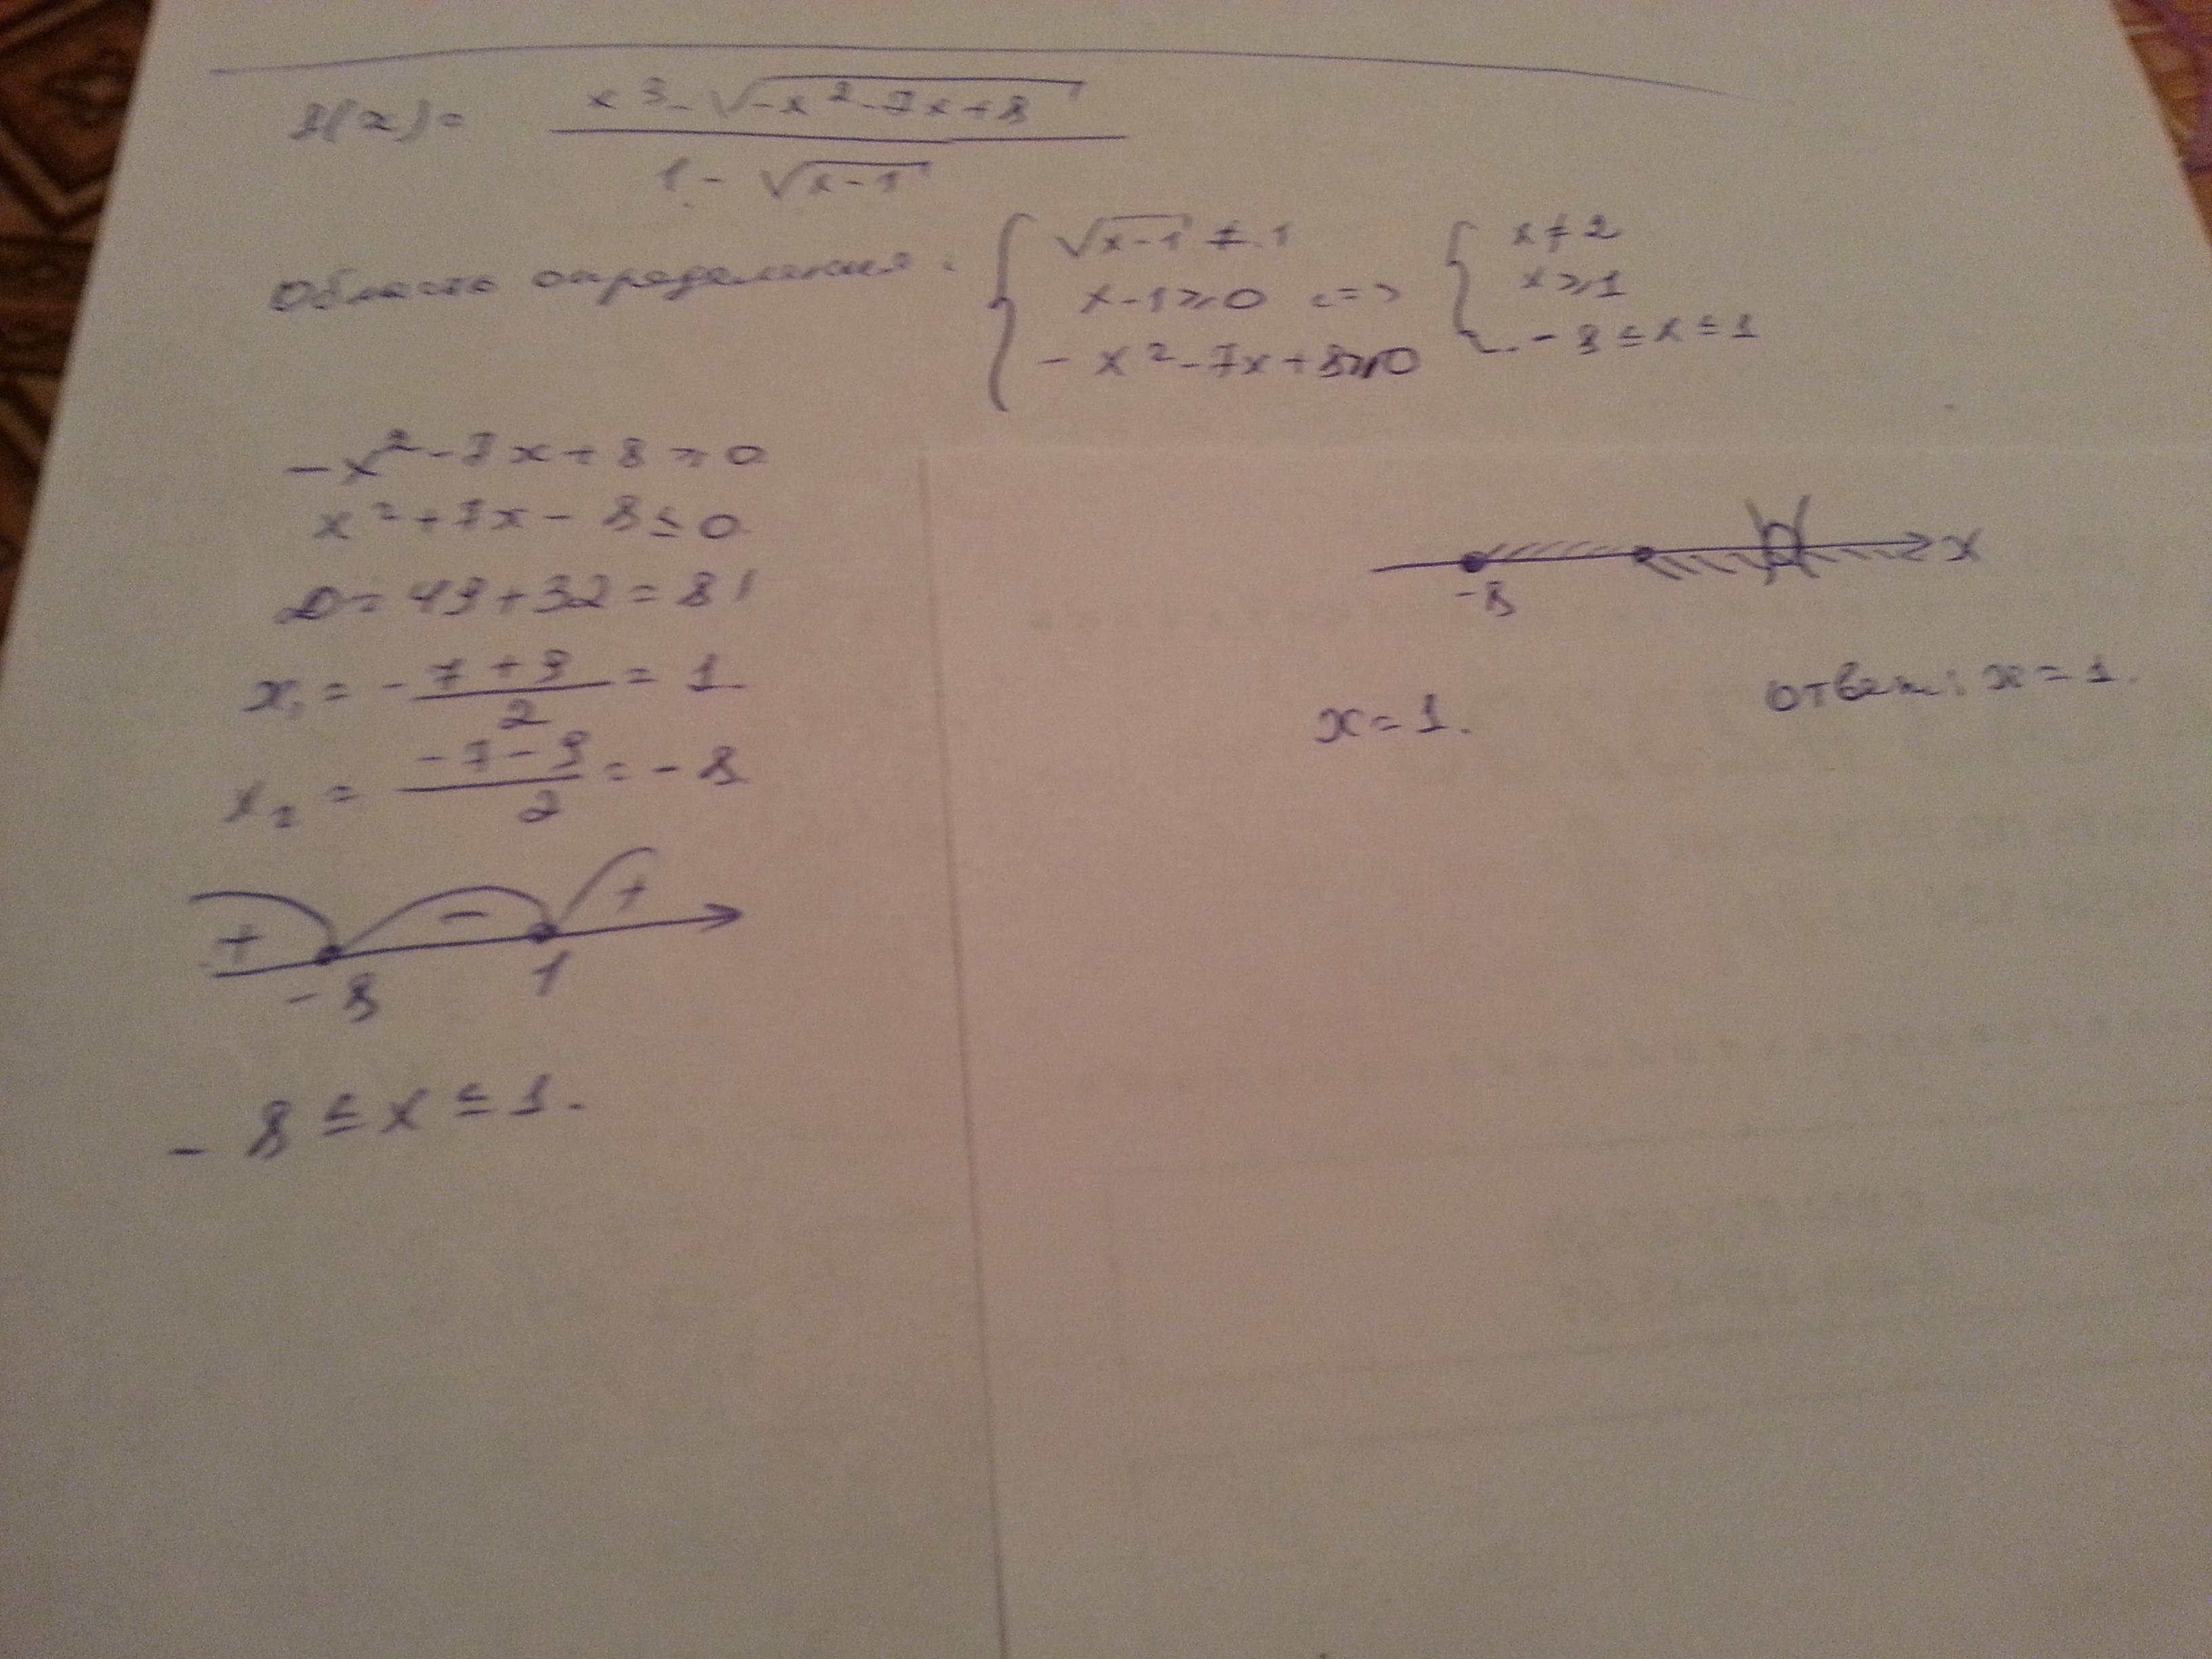 f(x) = (x³ - √(-x² - 7x + 8)) / (1 - √(x-1))
Область определения: { √(x-1) ≠ 1 ; x-1 ⩾ 0 ; -x² - 7x + 8 ⩾ 0 <=> { x ≠ 2 ; x ⩾ 1 ; -8 ≤ x ≤ 1
-x² - 7x + 8 ⩾ 0
x² + 7x - 8 ≤ 0
D = 49 + 32 = 81
x₁ = -(7 + 9)/2 = 1
x₂ = (-7 - 9)/2 = -8
+ - +
-8 1
-8 ≤ x ≤ 1.
x
-8
x = 1.
Ответ: x = 1.